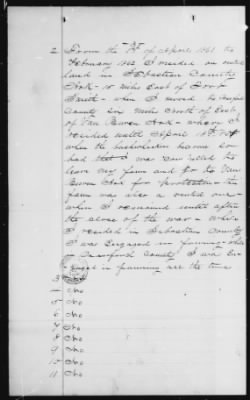 2 From the 1st of April 1861 to
February 1862 I resided on rented
land in Sebastian County
Ark - 15 miles East of Fort
Smith - when I moved to Crawford
County six miles North of East
of Van Buren Ark - where I
resided until April 15th
when the bushwhackers became so
bad that I was compelled to
leave my farm and go to Van
Buren Ark for protection - the
farm was also a rented one -
where I remained until after
the close of the war - while
I resided in Sebastian County
I was Engaged in farming - while
in Crawford County I was En-
gaged in farming all the time
3 No
4 No
5 No
6 No
7 No
8 No
9 No
10 No
11 No